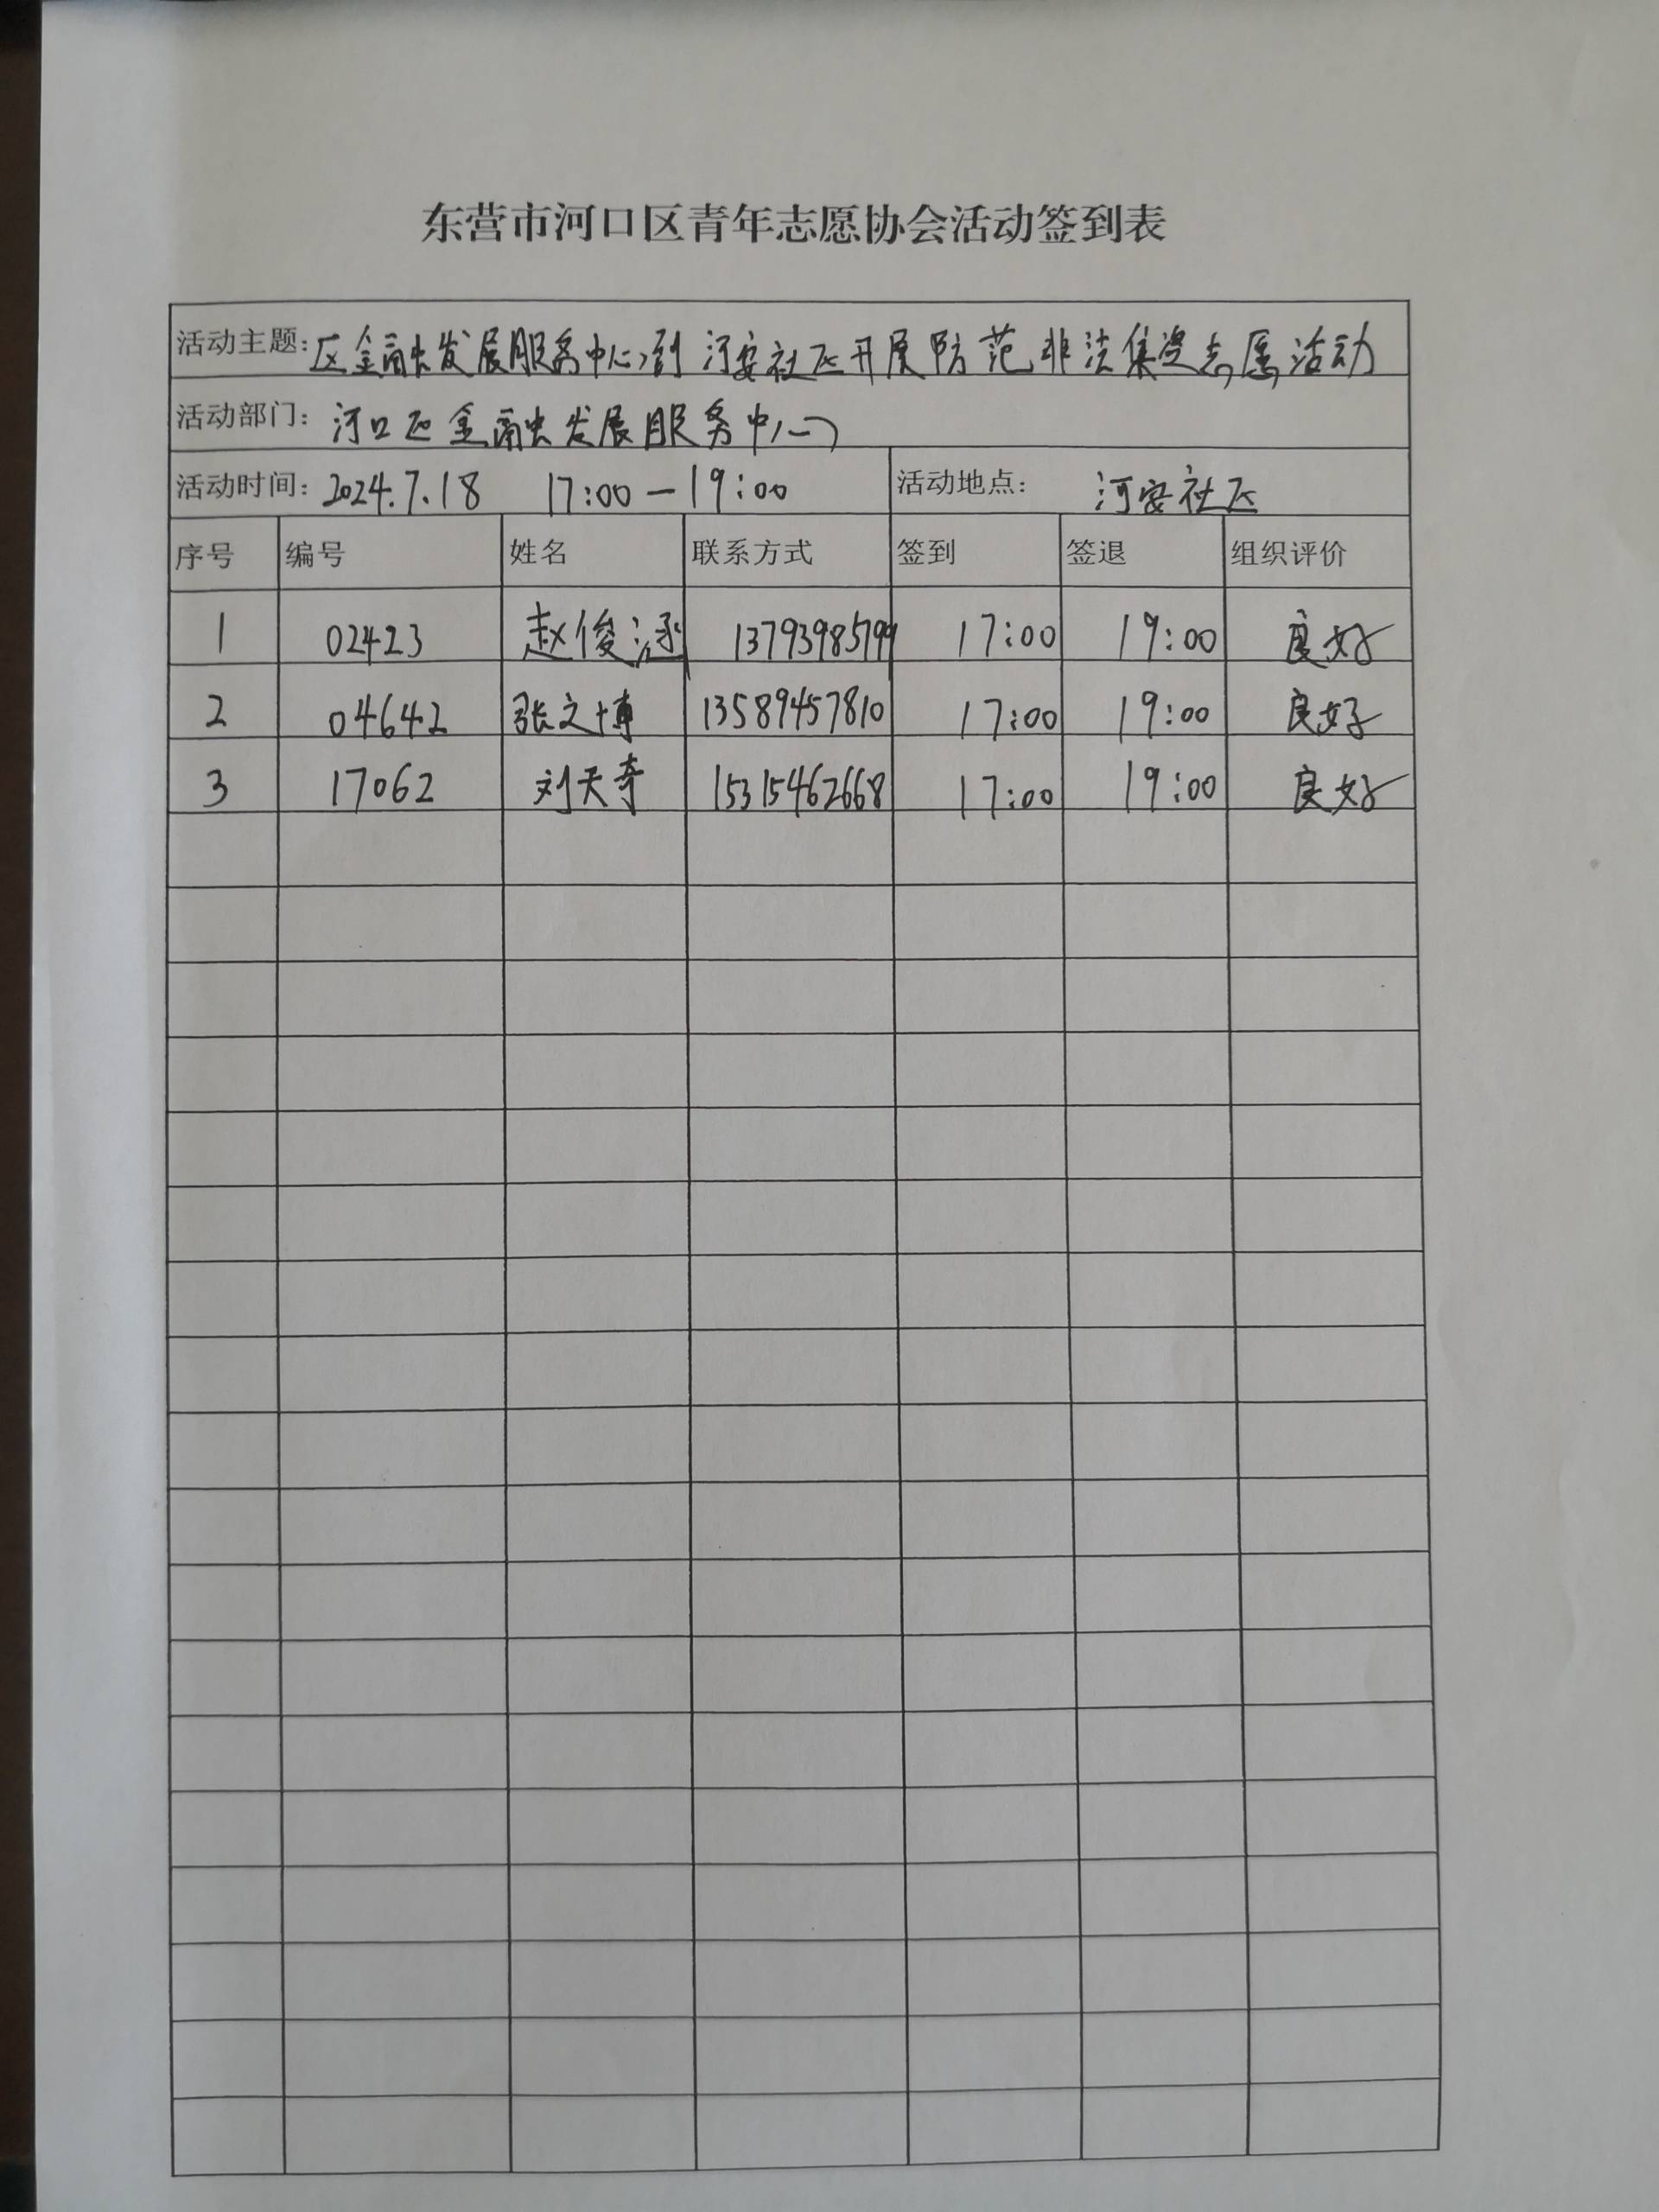 东营市河口区青年志愿协会活动签到表
活动主题：区金融发展服务中心到河安社区开展防范非法集资志愿活动
活动部门：河口区金融发展服务中心
活动时间：2024.7.18 17:00—19:00 活动地点：河安社区
序号 编号 姓名 联系方式 签到 签退 组织评价
1 02423 赵俊涵 13793985799 17:00 19:00 良好
2 04642 张文博 13589457810 17:00 19:00 良好
3 17062 刘天奇 15315462668 17:00 19:00 良好